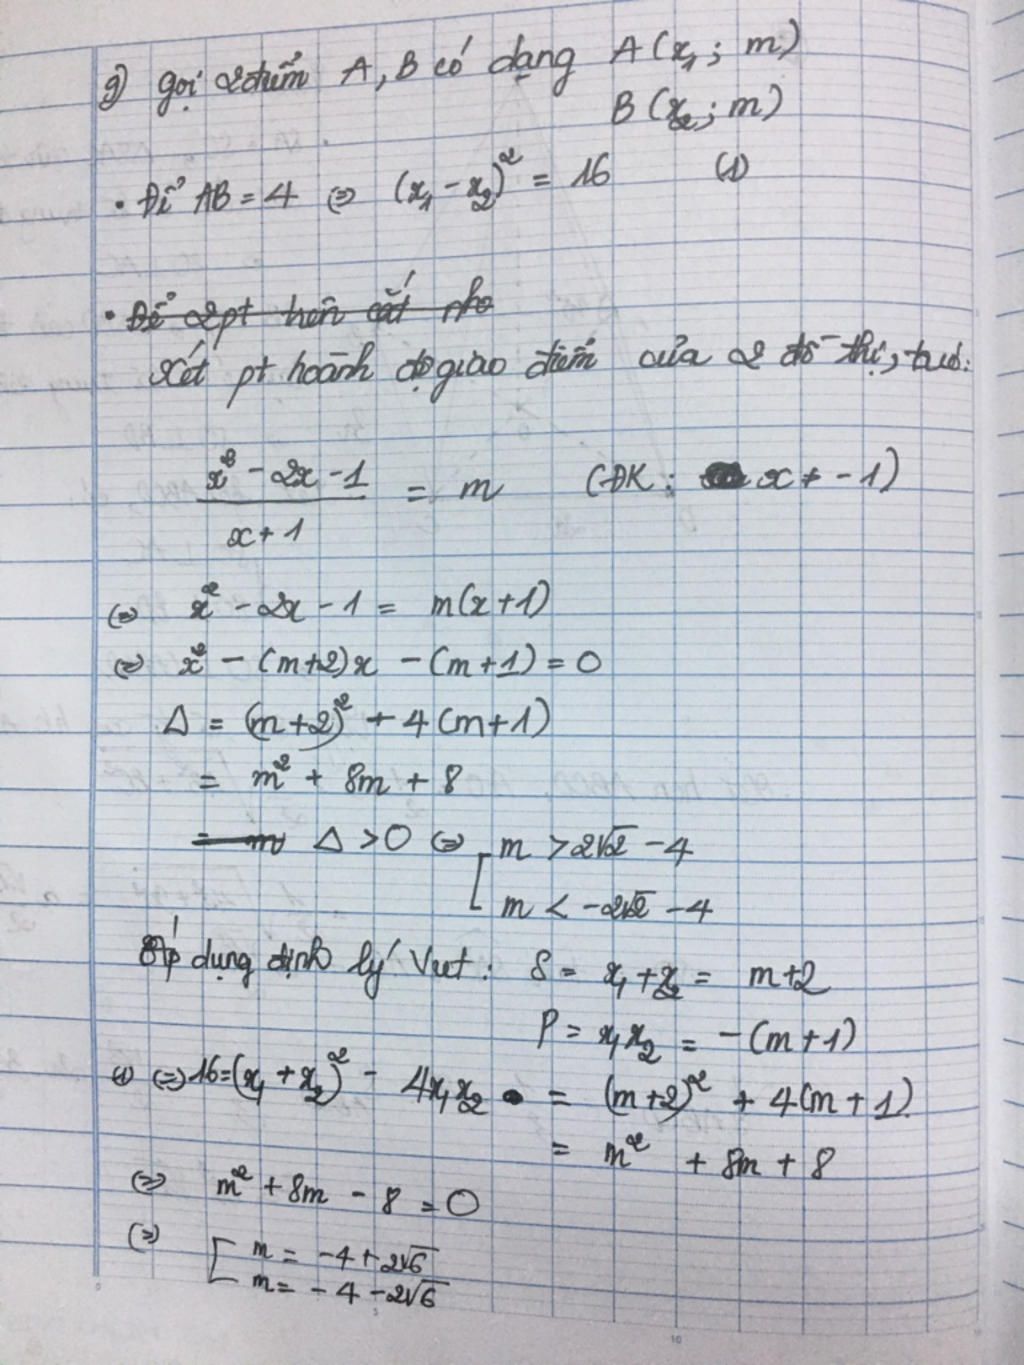 g) gọi 2 điểm A, B có dạng A(x₁; m)
B(x₂; m)
• Để AB = 4 ⇔ (x₁ - x₂)² = 16 (1)
• Để 2pt trên cắt nho
Xét pt hoành độ giao điểm của 2 đồ thị, ta có:
x² - 2x - 1 / x + 1 = m (ĐK: x ≠ -1)
⇔ x² - 2x - 1 = m(x+1)
⇔ x² - (m+2)x - (m+1) = 0
Δ = (m+2)² + 4(m+1)
= m² + 8m + 8
= m Δ > 0 ⇔ [ m > 2√2 - 4
m < -2√2 - 4
Áp dụng định lý Viet: S = x₁ + x₂ = m+2
P = x₁x₂ = -(m+1)
(1) ⇔ 16 = (x₁ + x₂)² - 4x₁x₂ = (m+2)² + 4(m+1)
= m² + 8m + 8
⇔ m² + 8m - 8 = 0
⇔ [ m = -4 + 2√6
m = -4 - 2√6